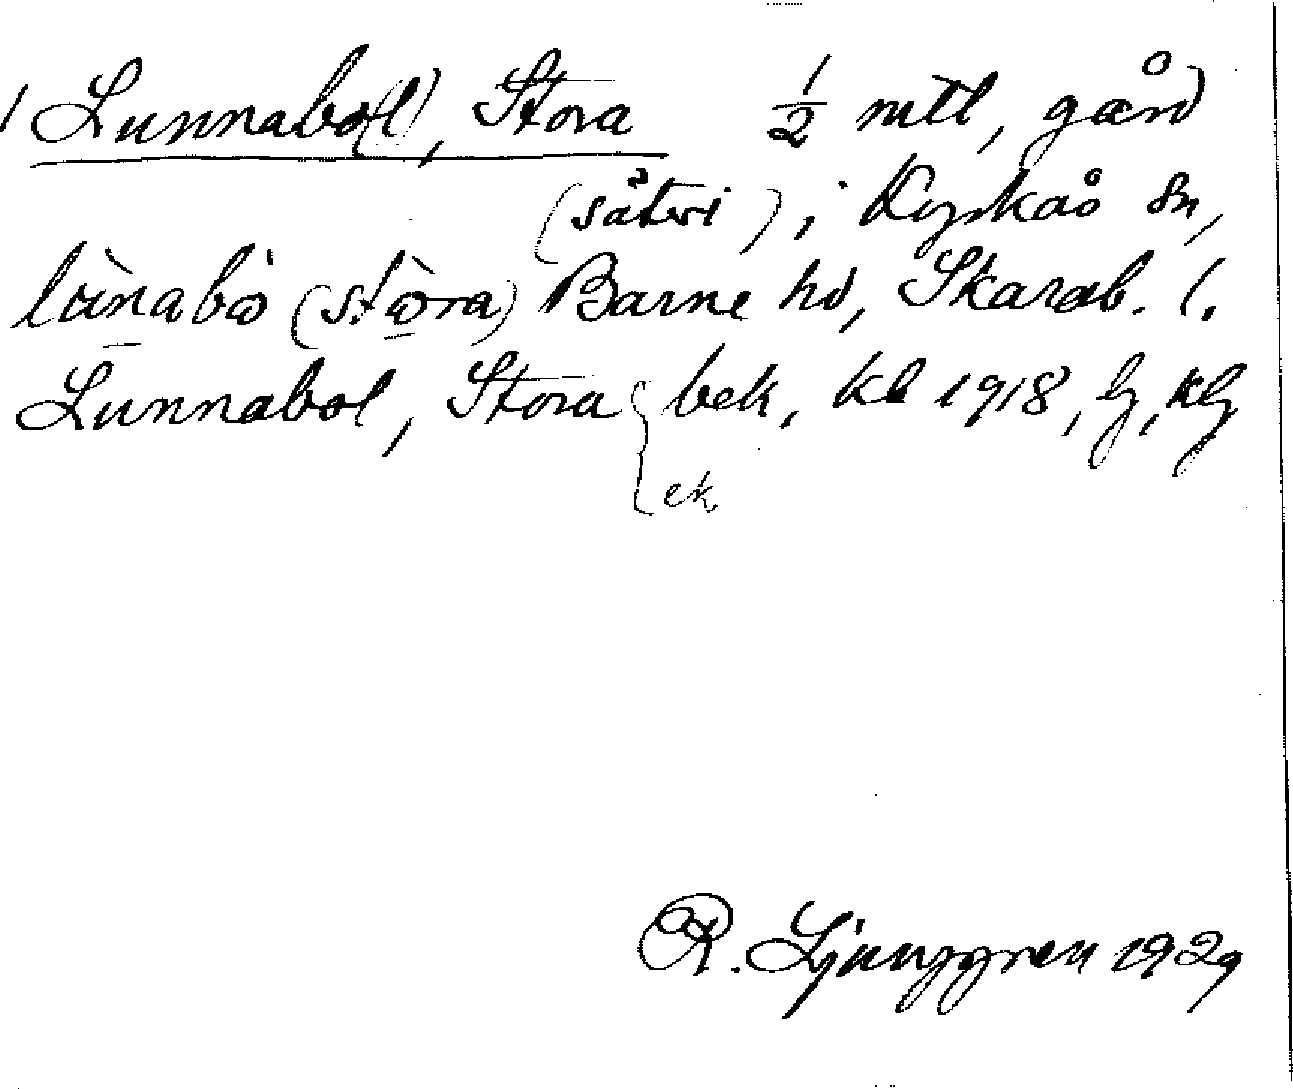 Lunnabo(l), Stora ½ mtl, gård
(säteri), i Kyrkås sn,
lùnabò (stòra) Barne hd, Skarab. l.
Lunnabol, Stora { bek, kb 1918, lg, klg
ek.
R. Ljunggren 1929